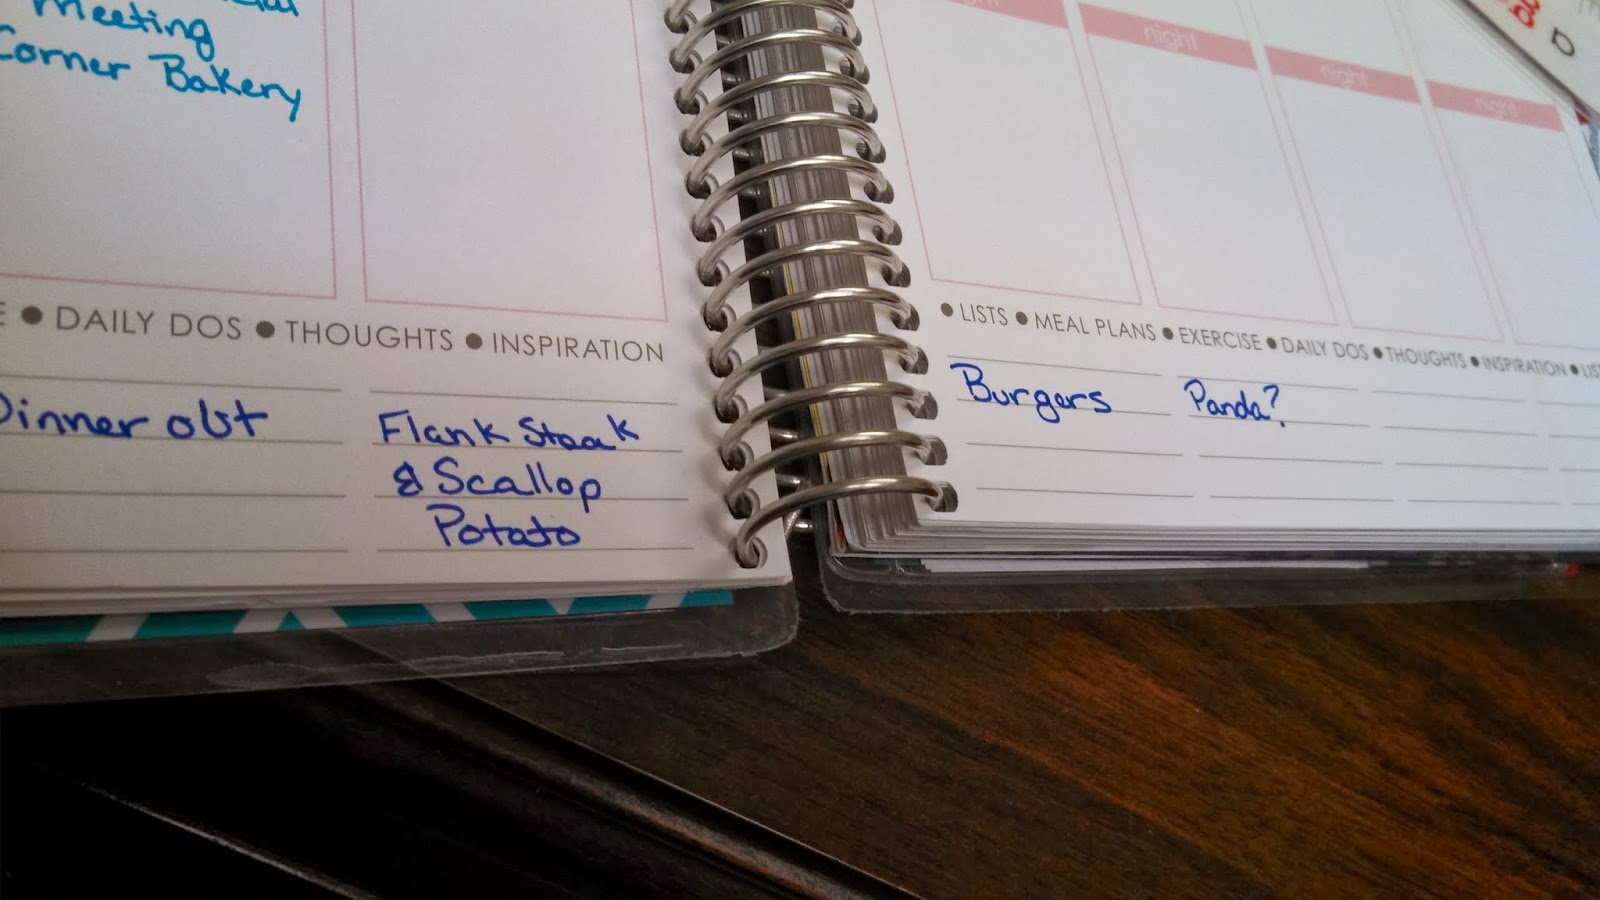 Meeting
Corner Bakery
● DAILY DOS ● THOUGHTS ● INSPIRATION
Dinner out
Flank Steak
& Scallop
Potato
night
night
night
● LISTS ● MEAL PLANS ● EXERCISE ● DAILY DOS ● THOUGHTS ● INSPIRATION ●
Burgers
Panda?
D